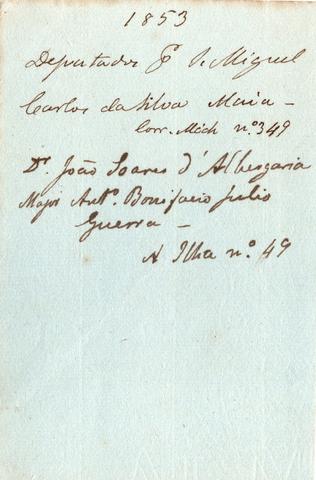 1853
Deputados p. S. Miguel
Carlos da Silva Maia —
Corr. Mich nº 349
Dr. João Soares d'Albergaria
Major Antº. Bonifacio Julio
Guerra —
A Ilha nº. 49